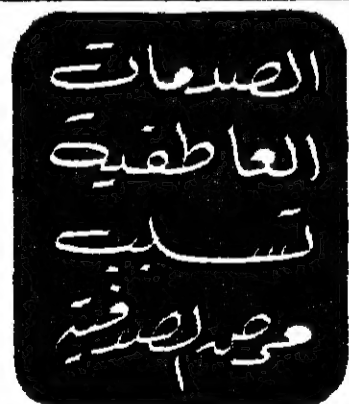 الصدمات
العاطفية
تسبب
مرض الصدفية